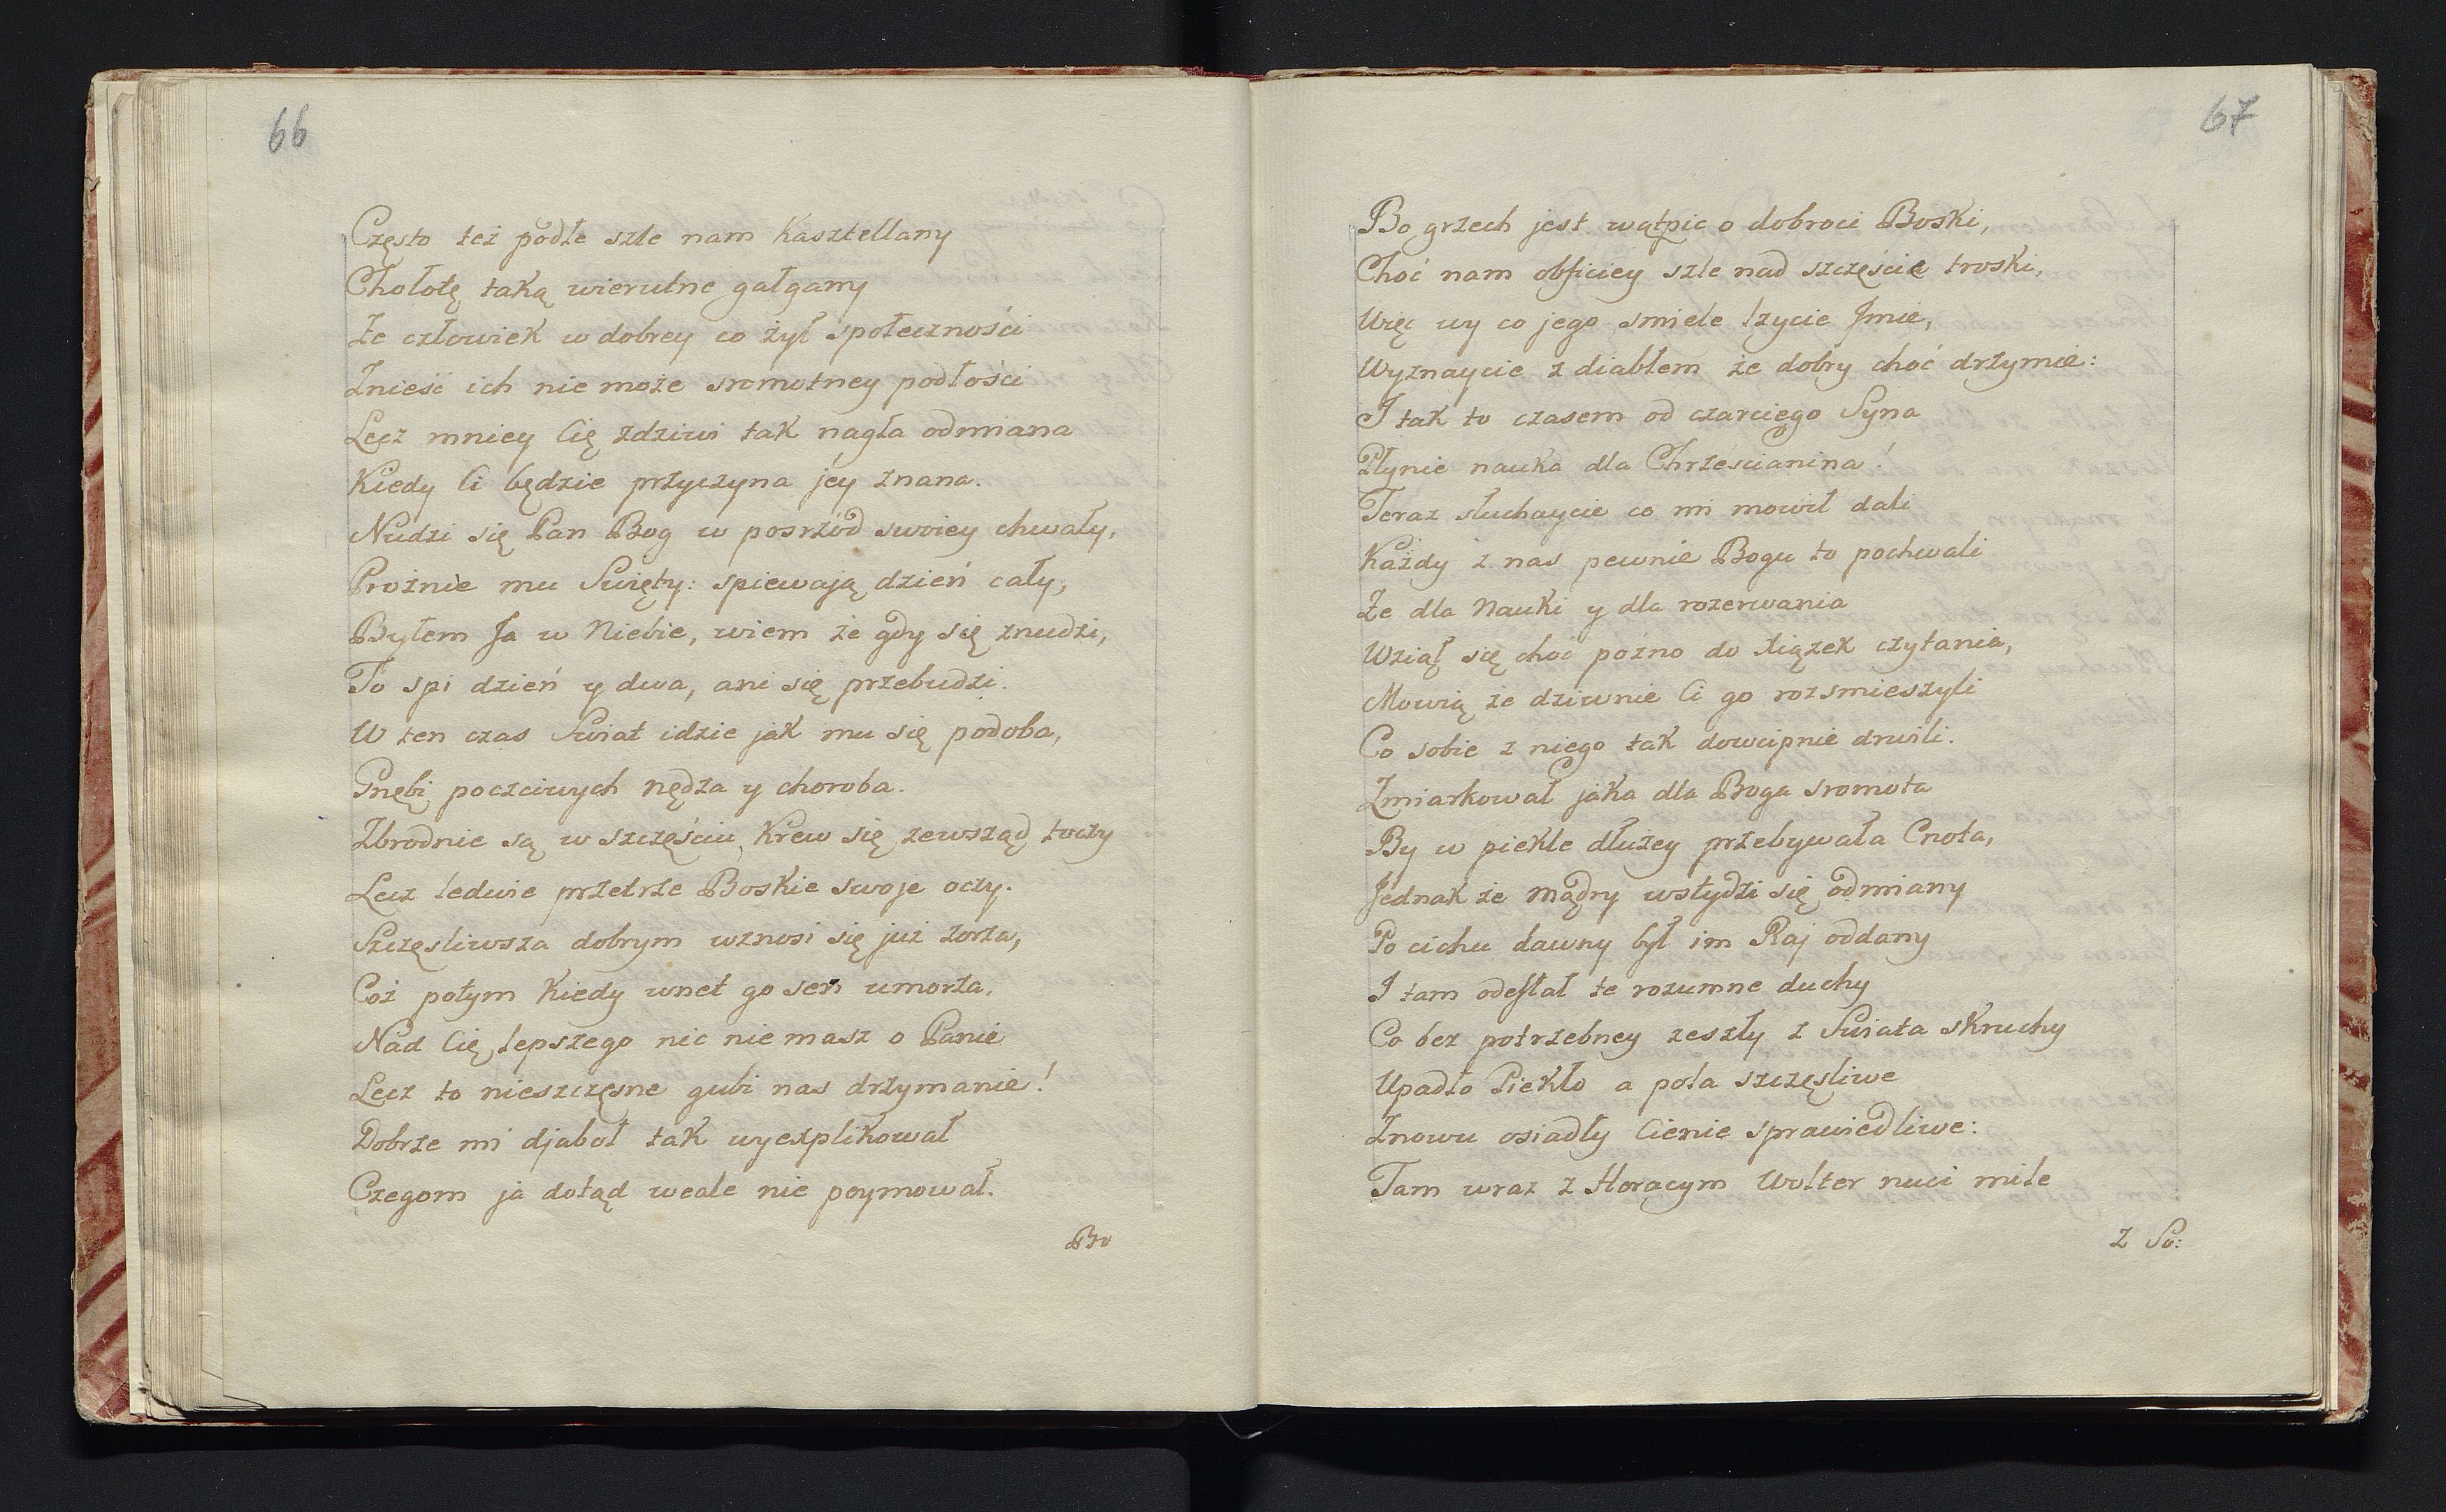 66
Często też podłe szle nam Kasztellany
Chołotę taką wierutne gałgany
Że człowiek w dobrey co żył społeczności
Znieść ich nie może sromotney podłości
Lecz mniey Cię zdziwi tak nagła odmiana
Kiedy Ci będzie przyczyna jey znana.
Nudzi się Pan Bog w posrzód swoiey chwały,
Prożnie mu Swięty: spiewają dzień cały,
Byłem Ja w Niebie, wiem że gdy się znudzi,
To spi dzień y dwa, ani się przebudzi.
W ten czas Swiat idzie jak mu się podoba,
Gnębi poczciwych nędza y choroba.
Zbrodnie są w szczęściu, Krew się zewsząd toczy
Lecz ledwie przetrze Boskie swoje oczy.
Szczęsliwsza dobrym wznosi się już zorza,
Coż potym Kiedy wnet go sen umorza,
Nad Cię lepszego nic nie masz o Panie
Lecz to nieszczęsne gubi nas drzymanie!
Dobrze mi djaboł tak wyexplikował
Czegom ja dotąd weale nie poymował.
Bo
67
Bo grzech jest wątpic o dobroci Boski,
Choć nam obficiey szle nad szczęście troski,
Więc wy co jego smiele lzycie Jmie,
Wyznaycie z diabłem że dobry choć drzymie:
I tak to czasem od czarciego Syna
Płynie nauka dla Chrzescianina!
Teraz słuchaycie co mi mowił dali
Każdy z nas pewnie Bogu to pochwali
Że dla Nauki y dla rozerwania
Wziął się choć pozno do xiązek czytania,
Mowią że dziwnie Ci go rozsmieszyli
Co sobie z niego tak dowcipnie drwili.
Zmiarkował jaka dla Boga sromota
By w piekle dłużey przebywała Cnota,
Jednak że mądry wstydzi się odmiany
Po cichu dawny był im Raj oddany
I tam odesłał te rozumne duchy
Co bez potrzebney zeszły z Swiata skruchy
Upadło Piekło a pola szczęsliwe
Znowu osiadły Cienie sprawiedliwe:
Tam wraz z Horacym Wolter nuci mile
Z So: